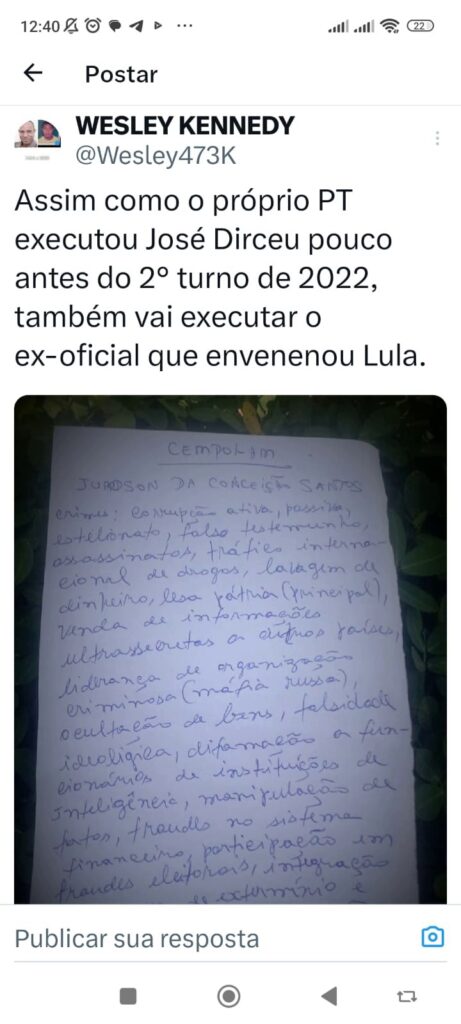 12:40
22
Postar
WESLEY KENNEDY
@Wesley473K
Assim como o próprio PT
executou José Dirceu pouco
antes do 2º turno de 2022,
também vai executar o
ex-oficial que envenenou Lula.
CEMPOLIM
JUADSON DA CONCEIÇÃO SANTOS
crimes: corrupção ativa, passiva,
estelionato, falso testemunho,
assassinatos, tráfico interna-
cional de drogas, lavagem de
dinheiro, lesa pátria (principal),
venda de informações
ultrassecretas a outros países,
liderança de organização
criminosa (máfia russa),
ocultação de bens, falsidade
ideológica, difamação a fun-
cionários de instituições de
inteligência, manipulação de
fatos, fraudes no sistema
financeiro, participação em
fraudes eleitorais, integração
de extermínio e
Publicar sua resposta